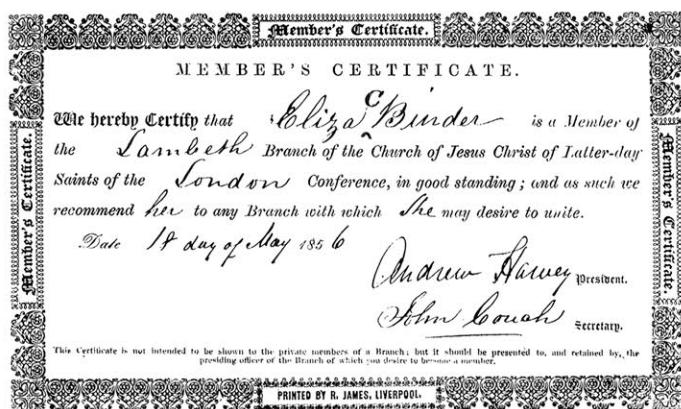 Member's Certificate.
MEMBER'S CERTIFICATE.
C
We hereby Certify that Eliza Binder is a Member of
the Lambeth Branch of the Church of Jesus Christ of Latter-day
Saints of the London Conference, in good standing; and as such we
recommend her to any Branch with which She may desire to unite.
Date 18 day of May 1856
Andrew Harvey President.
John Couch Secretary.
This Certificate is not intended to be shown to the private members of a Branch; but it should be presented to, and retained by, the
presiding officer of the Branch of which you desire to become a member.
PRINTED BY R. JAMES, LIVERPOOL.
Member's Certificate.
Member's Certificate.